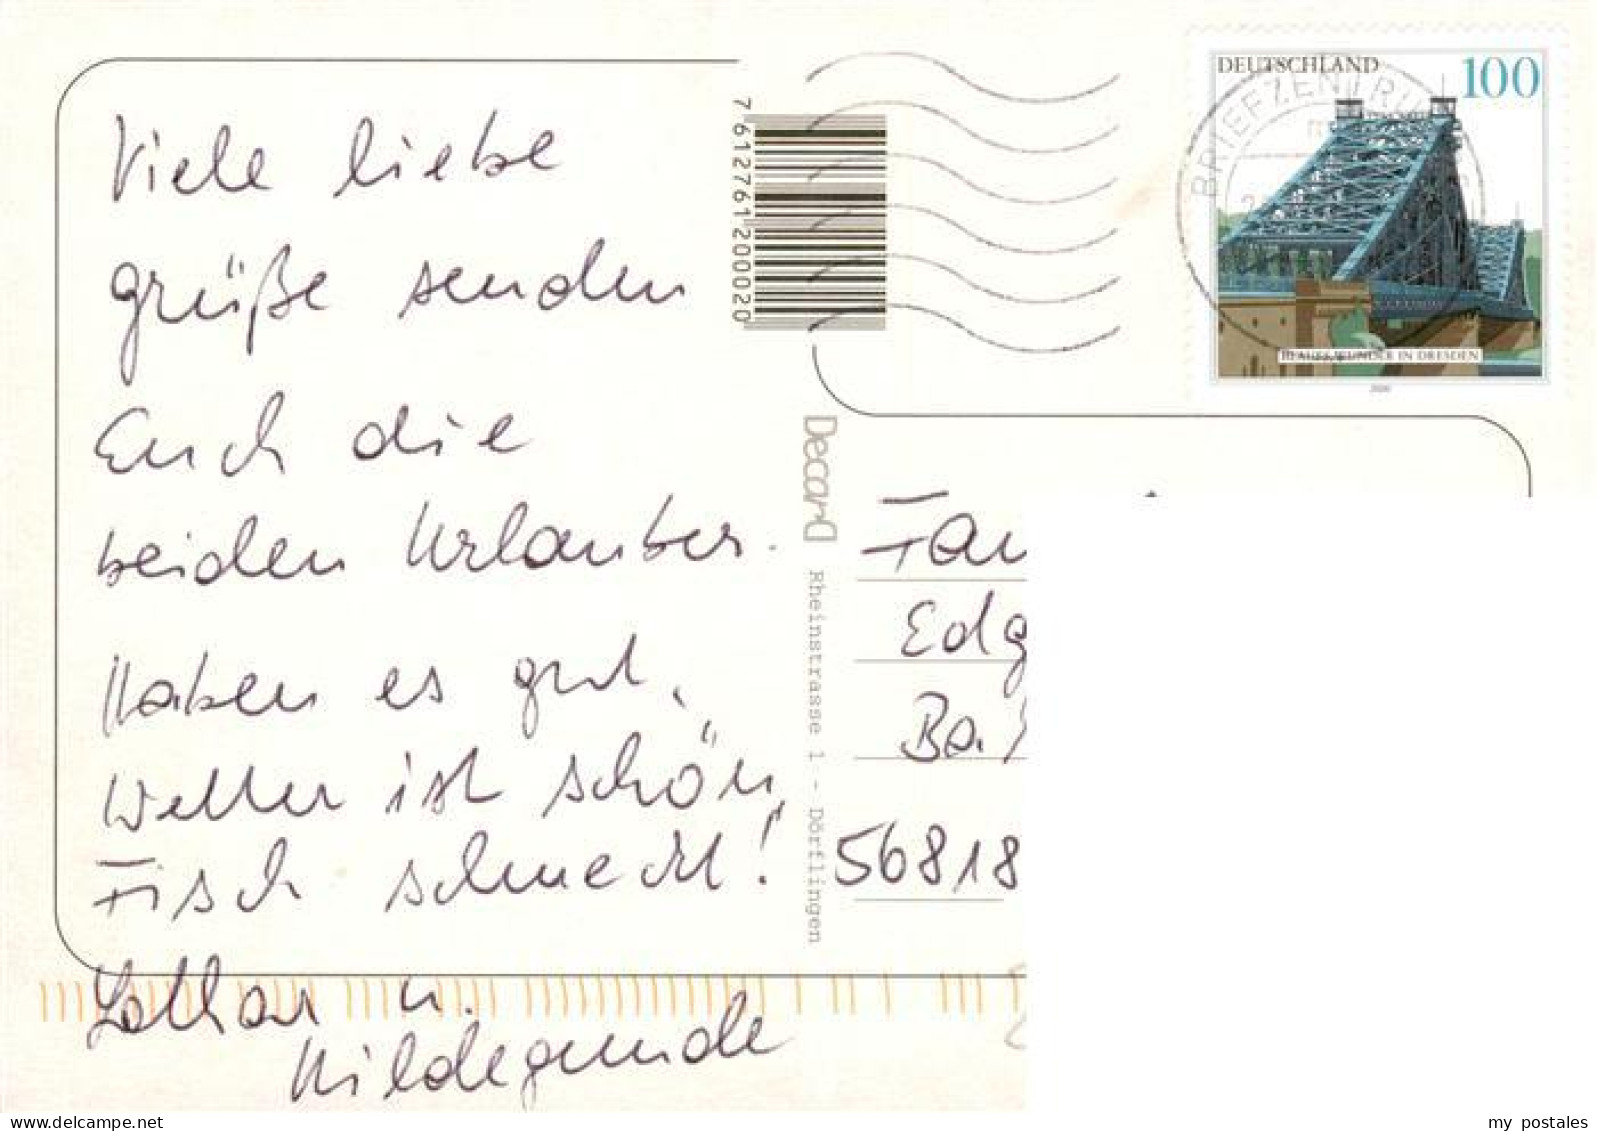 Viele liebe
grüße senden
Euch die
beiden Urlauber.
Haben es gut,
Wetter ist schön,
Fisch schmeckt!
Lothar u.
Hildegunde
7612761200020
DEUTSCHLAND 100
BRIEFZENTRUM
BLAUES WUNDER IN DRESDEN
2000
Decard
Rheinstrasse 1 - Dörflingen
Fam
Edg
Ba
56818
www.delcampe.net
my_postales